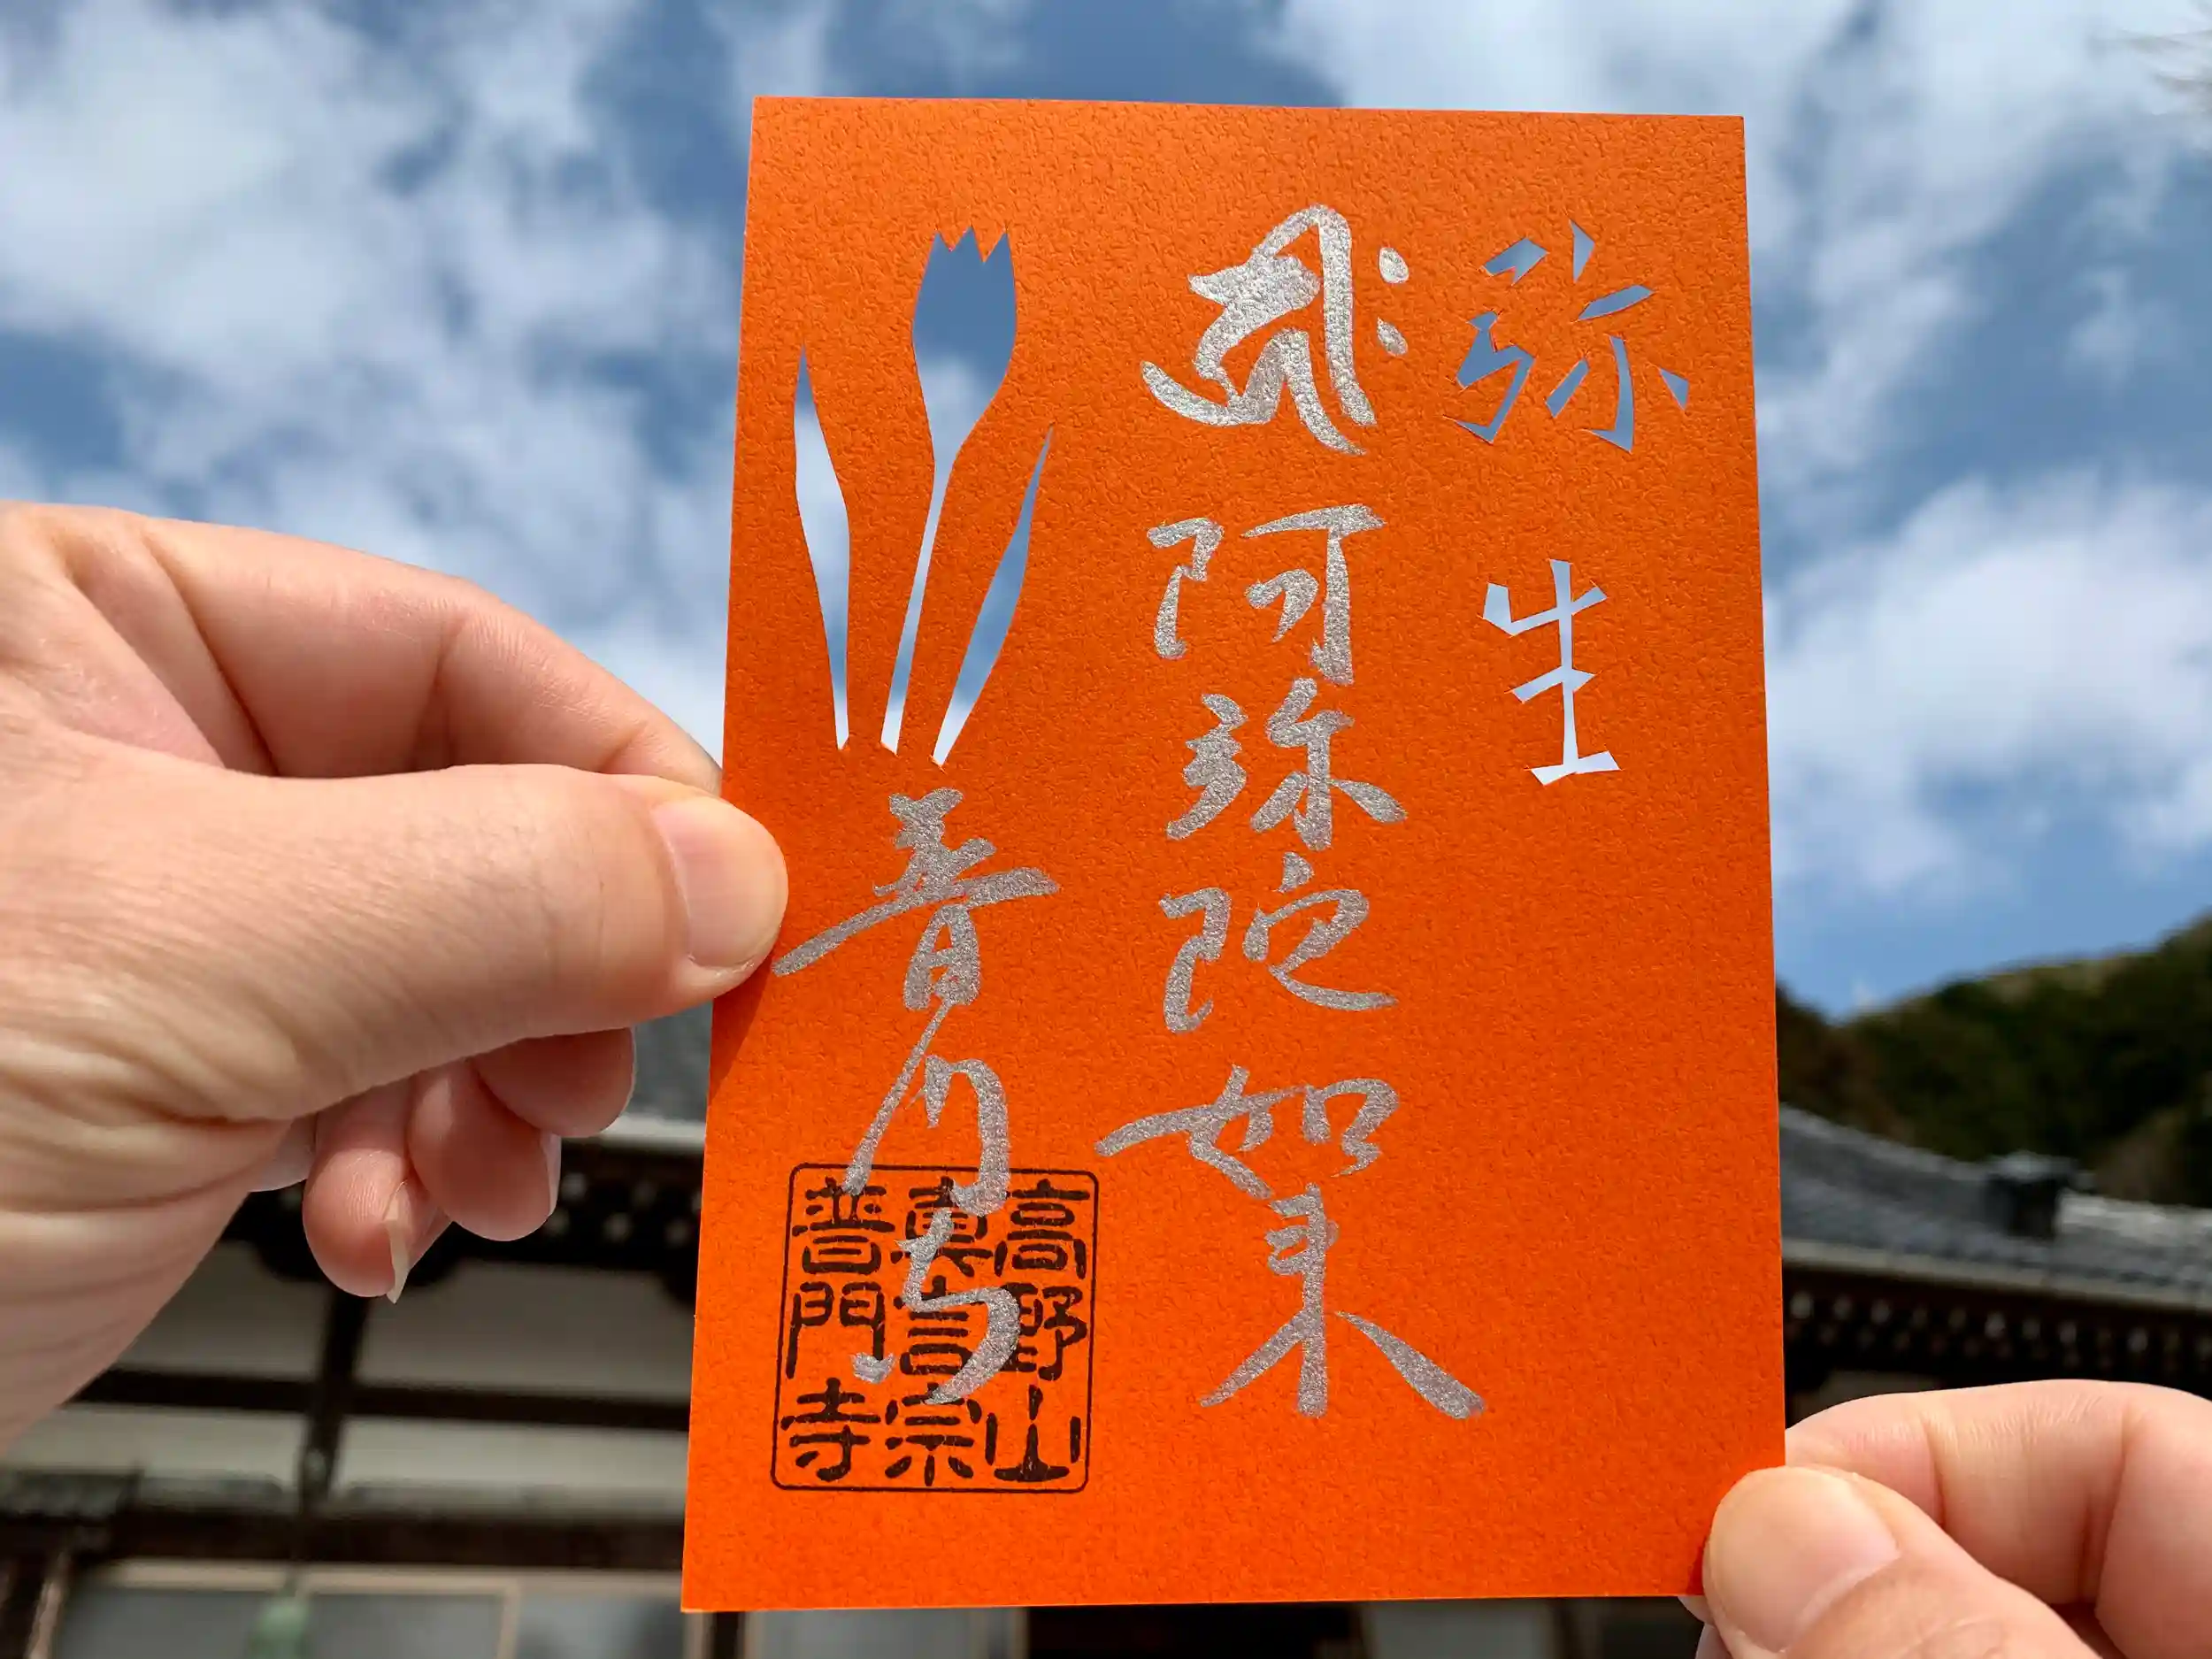 弥生
𑖮𑖿𑖨𑖱𑖾
阿弥陀如来
普門寺
高野山
真言宗
普門寺